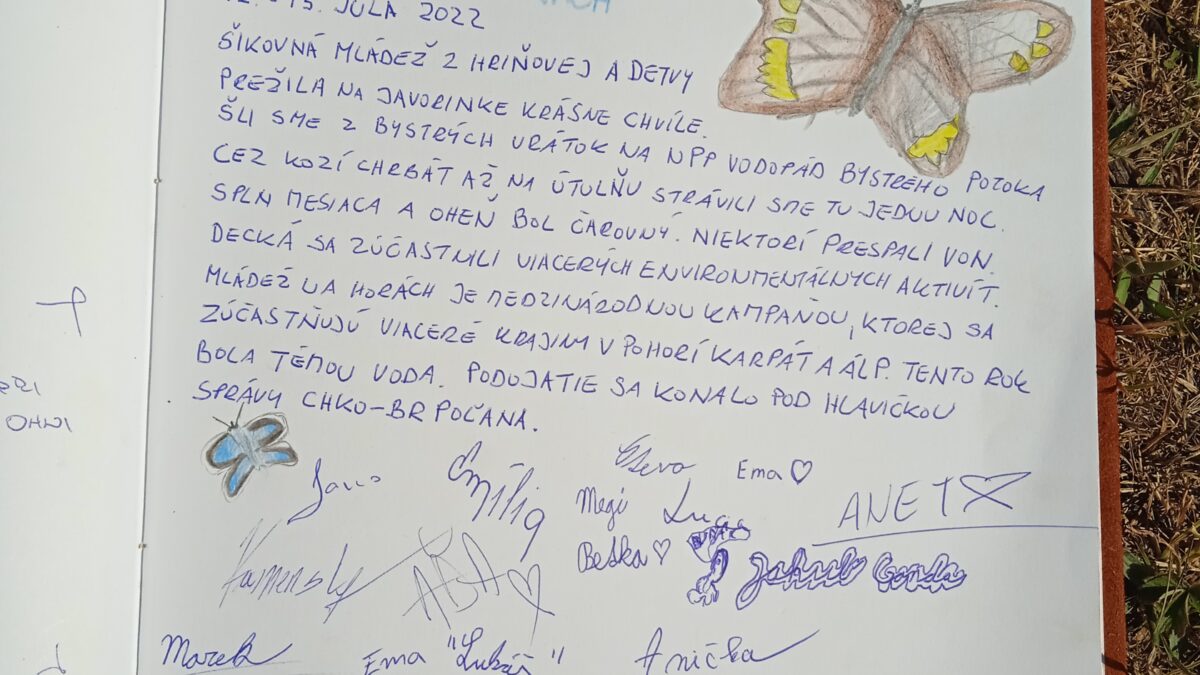 JÚLA 2022
ŠIKOVNÁ MLÁDEŽ Z HRIŇOVEJ A DETVY
PREŽILA NA JAVORINKE KRÁSNE CHVÍLE.
ŠLI SME Z BYSTRÝCH VRÁTOK NA NPP VODOPÁD BYSTRÉHO POTOKA
CEZ KOZÍ CHRBÁT AŽ NA ÚTULŇU STRÁVILI SME TU JEDNU NOC.
SPLN MESIACA A OHEŇ BOL ČAROVNÝ. NIEKTORÍ PRESPALI VON.
DECKÁ SA ZÚČASTNILI VIACERÝCH ENVIRONMENTÁLNYCH AKTIVÍT.
MLÁDEŽ NA HORÁCH JE MEDZINÁRODNOU KAMPAŇOU, KTOREJ SA
ZÚČASTŇUJÚ VIACERÉ KRAJINY V POHORÍ KARPÁT A ÁLP. TENTO ROK
BOLA TÉMOU VODA. PODUJATIE SA KONALO POD HLAVIČKOU
SPRÁVY CHKO-BR POĽANA.
OHNI
Emília
Ema ♡
Megi
ANET
Beťka ♡
Jakub Gonda
Marek
Ema "Lukáš"
Anička